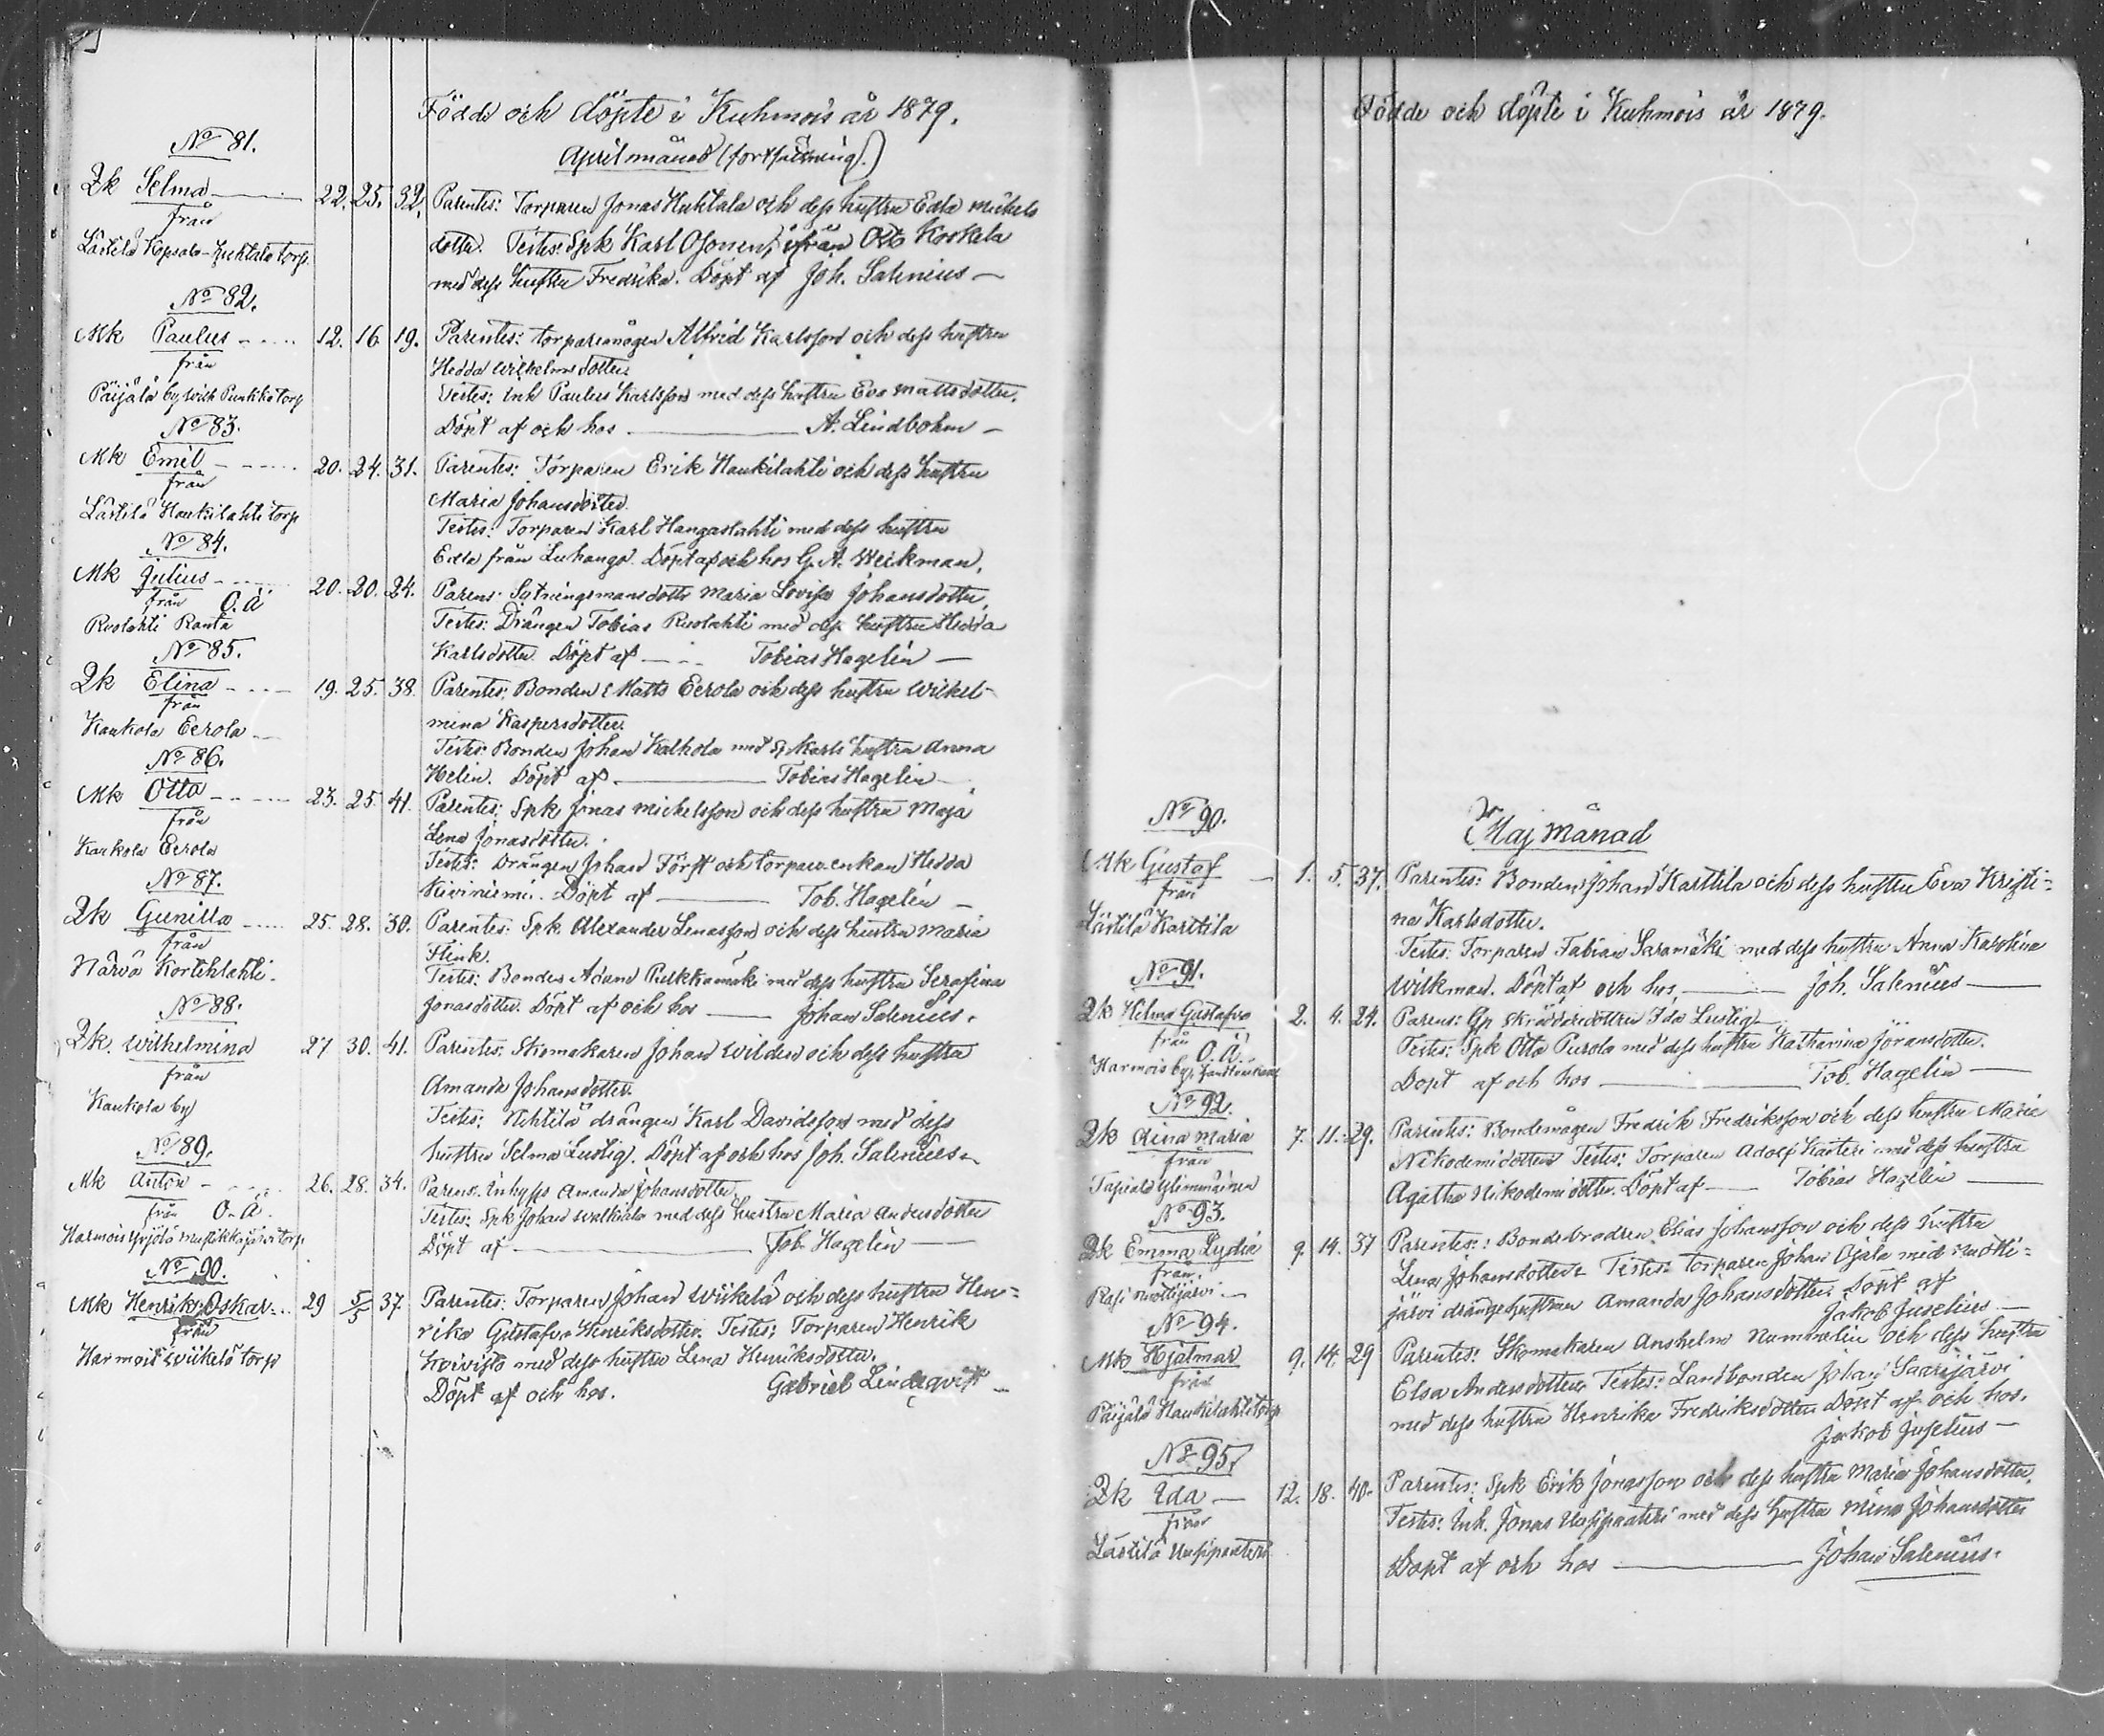 Födde och döpte i Kuhmois år 1879.
April månad (fortsättning.)
No 81.
Qk Selma 22. 25. 32. Parentes: Torparen Jonas Huhtala och dess hustru Edla Michels
från
dotter. Testes: Spk Karl Osonen, ifrån Otto Koskela
Lästilä Kopsala-Huhtala torp.
med dess hustru Fredrika. Döpt af Joh. Salenius
No 82.
Mk Paulus 12. 16. 19. Parentes: torparemågen Alfred Karlsson och dess hustru
från
Hedda Wilhelmsdotter.
Päijälä by Punkka torp
Testes: Inh Paulus Karlsson med dess hustru Eva Mattsdotter.
No 83.
Döpt af och hos A. Lindbohm
Mk Emil 20. 24. 31. Parentes: Torparen Erik Haukilahti och dess hustru
från
Maria Johansdotter.
Lästilä Haukilahti torp
Testes: Torparen Karl Hangaslahti med dess hustru
No 84.
Edla från Luhango. Döpt af och hos G. A. Weckman.
Mk Julius 20. 20. 24. Parens: Sytningsmansdottr Maria Lovisa Johansdotter,
från O. Ä
Testes: Drängen Tobias Ruolahti med dess hustru Hedda
Ruolahti Ranta
No 85.
Karlsdotter. Döpt af Tobias Hagelin
Qk Elina 19. 25. 38. Parentes: Bonden Matts Eerola och dess hustru Wilhel-
från
mina Kaspersdotter.
Kaukola Eerola
Testes: Bonden Johan Kalhola med Spk Karls hustru Anna
No 86.
Helin. Döpt af Tobias Hagelin
Mk Otto 23. 25. 41. Parentes: Spk Jonas Michelsson och dess hustru Maja
från
Lena Jonasdotter.
Kaukola Eerola
Testes: Drängen Johan Först och torpareenkan Hedda
No 87.
Kiviniemi. Döpt af Tob. Hagelin
Qk Gunilla 25. 28. 30. Parentes: Spk. Alexander Lenasson och dess hustru Maria
från
Flink.
Närvä Kortehlahti.
Testes: Bonden Adam Pukkamäki med dess hustru Serafina
No 88.
Jonasdotter. Döpt af och hos Johan Salenius.
Qk. Wilhelmina 27 30. 41. Parentes: Skomakaren Johan Wilden och dess hustru
från
Amanda Johansdotter.
Kaukola by
Testes: Nihtilä drängen Karl Davidsson med dess
No 89.
hustru Selma Lustig. Döpt af och hos Joh. Salenius
Mk Anton 26. 28. 34. Parens. Inhyses Amanda Johansdotter.
från O. Ä.
Testes: Spk Johan med dess hustru Maria Andersdotter
Harmois Yrjölä Mustikkajärvi torp
Döpt af Tob. Hagelin
No 90.
Mk Henrik Oskar 29 5/5 37. Parentes: Torparen Johan Wiikelä och dess hustru Hen-
från
rika Gustafva Henriksdotter. Testes: Torparen Henrik
Harmois Wiikelä torp
Koivisto med dess hustru Lena Henriksdotter.
Döpt af och hos. Gabriel Lindeqvist
Födde och döpte i Kuhmois år 1879.
Maj månad
No 90.
Mk Gustaf 1. 5. 37. Parentes: Bonden Johan Karttila och dess hustru Eva Kristi-
från
na Karlsdotter.
Lästilä Karttila
Testes: Torparen Fabian Saramäki med dess hustru Anna Karolina
No 91.
Wilkman. Döpt af och hos Joh. Salenius
Qk Hilma Gustafva 2. 4. 24. Parens: Gp skräddaredottren Ida Lustig
från O. Ä.
Testes: Spk Otto Purola med dess hustru Katharina Göransdotter.
Harmois by
Döpt af och hos Tob. Hagelin
No 92.
Qk Aina Maria 7. 11. 29. Parentes: Bondemågen Fredrik Fredriksson och dess hustru Maria
från
Nikodemidotter Testes: Torparen Adolf Kanteri med dess hustru
Tapiala Ylimmäinen
Agatha Nikodemidotter. Döpt af Tobias Hagelin
No 93.
Qk Emma Lydia 9. 14. 37 Parentes: Bondebrodren Elias Johansson och dess hustru
från
Lena Johansdotter. Testes: Torparen Johan Ojala med Nuotti-
Pasi Nuottijärvi
järvi drängehustrun Amanda Johansdotter. Döpt af
Jakob Juselius
No 94.
Mk Hjalmar 9. 14. 29 Parentes: Skomakaren Anshelm Nummelin och dess hustru
från
Elsa Andersdotter Testes: Landbonden Johan Saarijärvi
Päijälä Haukilahti torp
med dess hustru Henrika Fredriksdotter Döpt af och hos.
Jakob Juselius
No 95.
Qk Ida 12. 18. 40. Parentes: Spk Erik Jonasson och dess hustru Maria Johansdotter.
från
Testes: Inh. Jonas Uusipaateri med dess hustru Mina Johansdotter
Lästilä Uusipaateri
Döpt af och hos Johan Salenius.